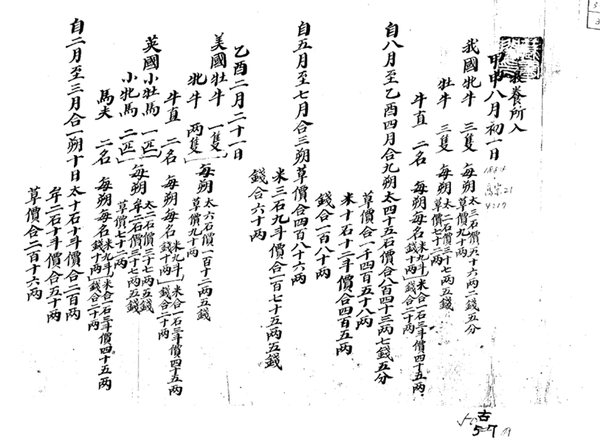 養所入
甲申八月初一日
1884
高宗21
4:17
我國牝牛 三隻 每朔 太三石價六十六兩二錢五分 草價九十兩
牡牛 三隻 每朔 太二石價三十七兩五錢 草價七十二兩
牛直 二名 每朔每名 米九斗 錢十兩 米合一石三斗價四十五兩 錢合二十兩
自八月至乙酉四月合九朔太四十五石價合八百四十三兩七錢五分
草價合一千四百五十八兩
米十石十二斗價合四百五兩
錢合一百八十兩
自五月至七月合三朔草價合四百八十六兩
米三石九斗價合一百七十五兩五錢
錢合六十兩
乙酉二月二十一日
美國牡牛 一隻
牝牛 兩隻 每朔 太六石價一百十二兩五錢 草價九十兩
牛直 二名 每朔每名 米九斗 錢十兩 米合一石三斗價四十五兩 錢合二十兩
英國小牡馬 一匹
小牝馬 二匹 每朔 太二石價三十七兩五錢 牟二石價三十七兩五錢 草價七十二兩
馬夫 二名 每朔每名 米九斗 錢十兩 米合一石三斗價四十五兩 錢合二十兩
自二月至三月合一朔十日太十石十斗價合二百兩
牟二石十斗價合五十兩
草價合二百十六兩
古
5-7